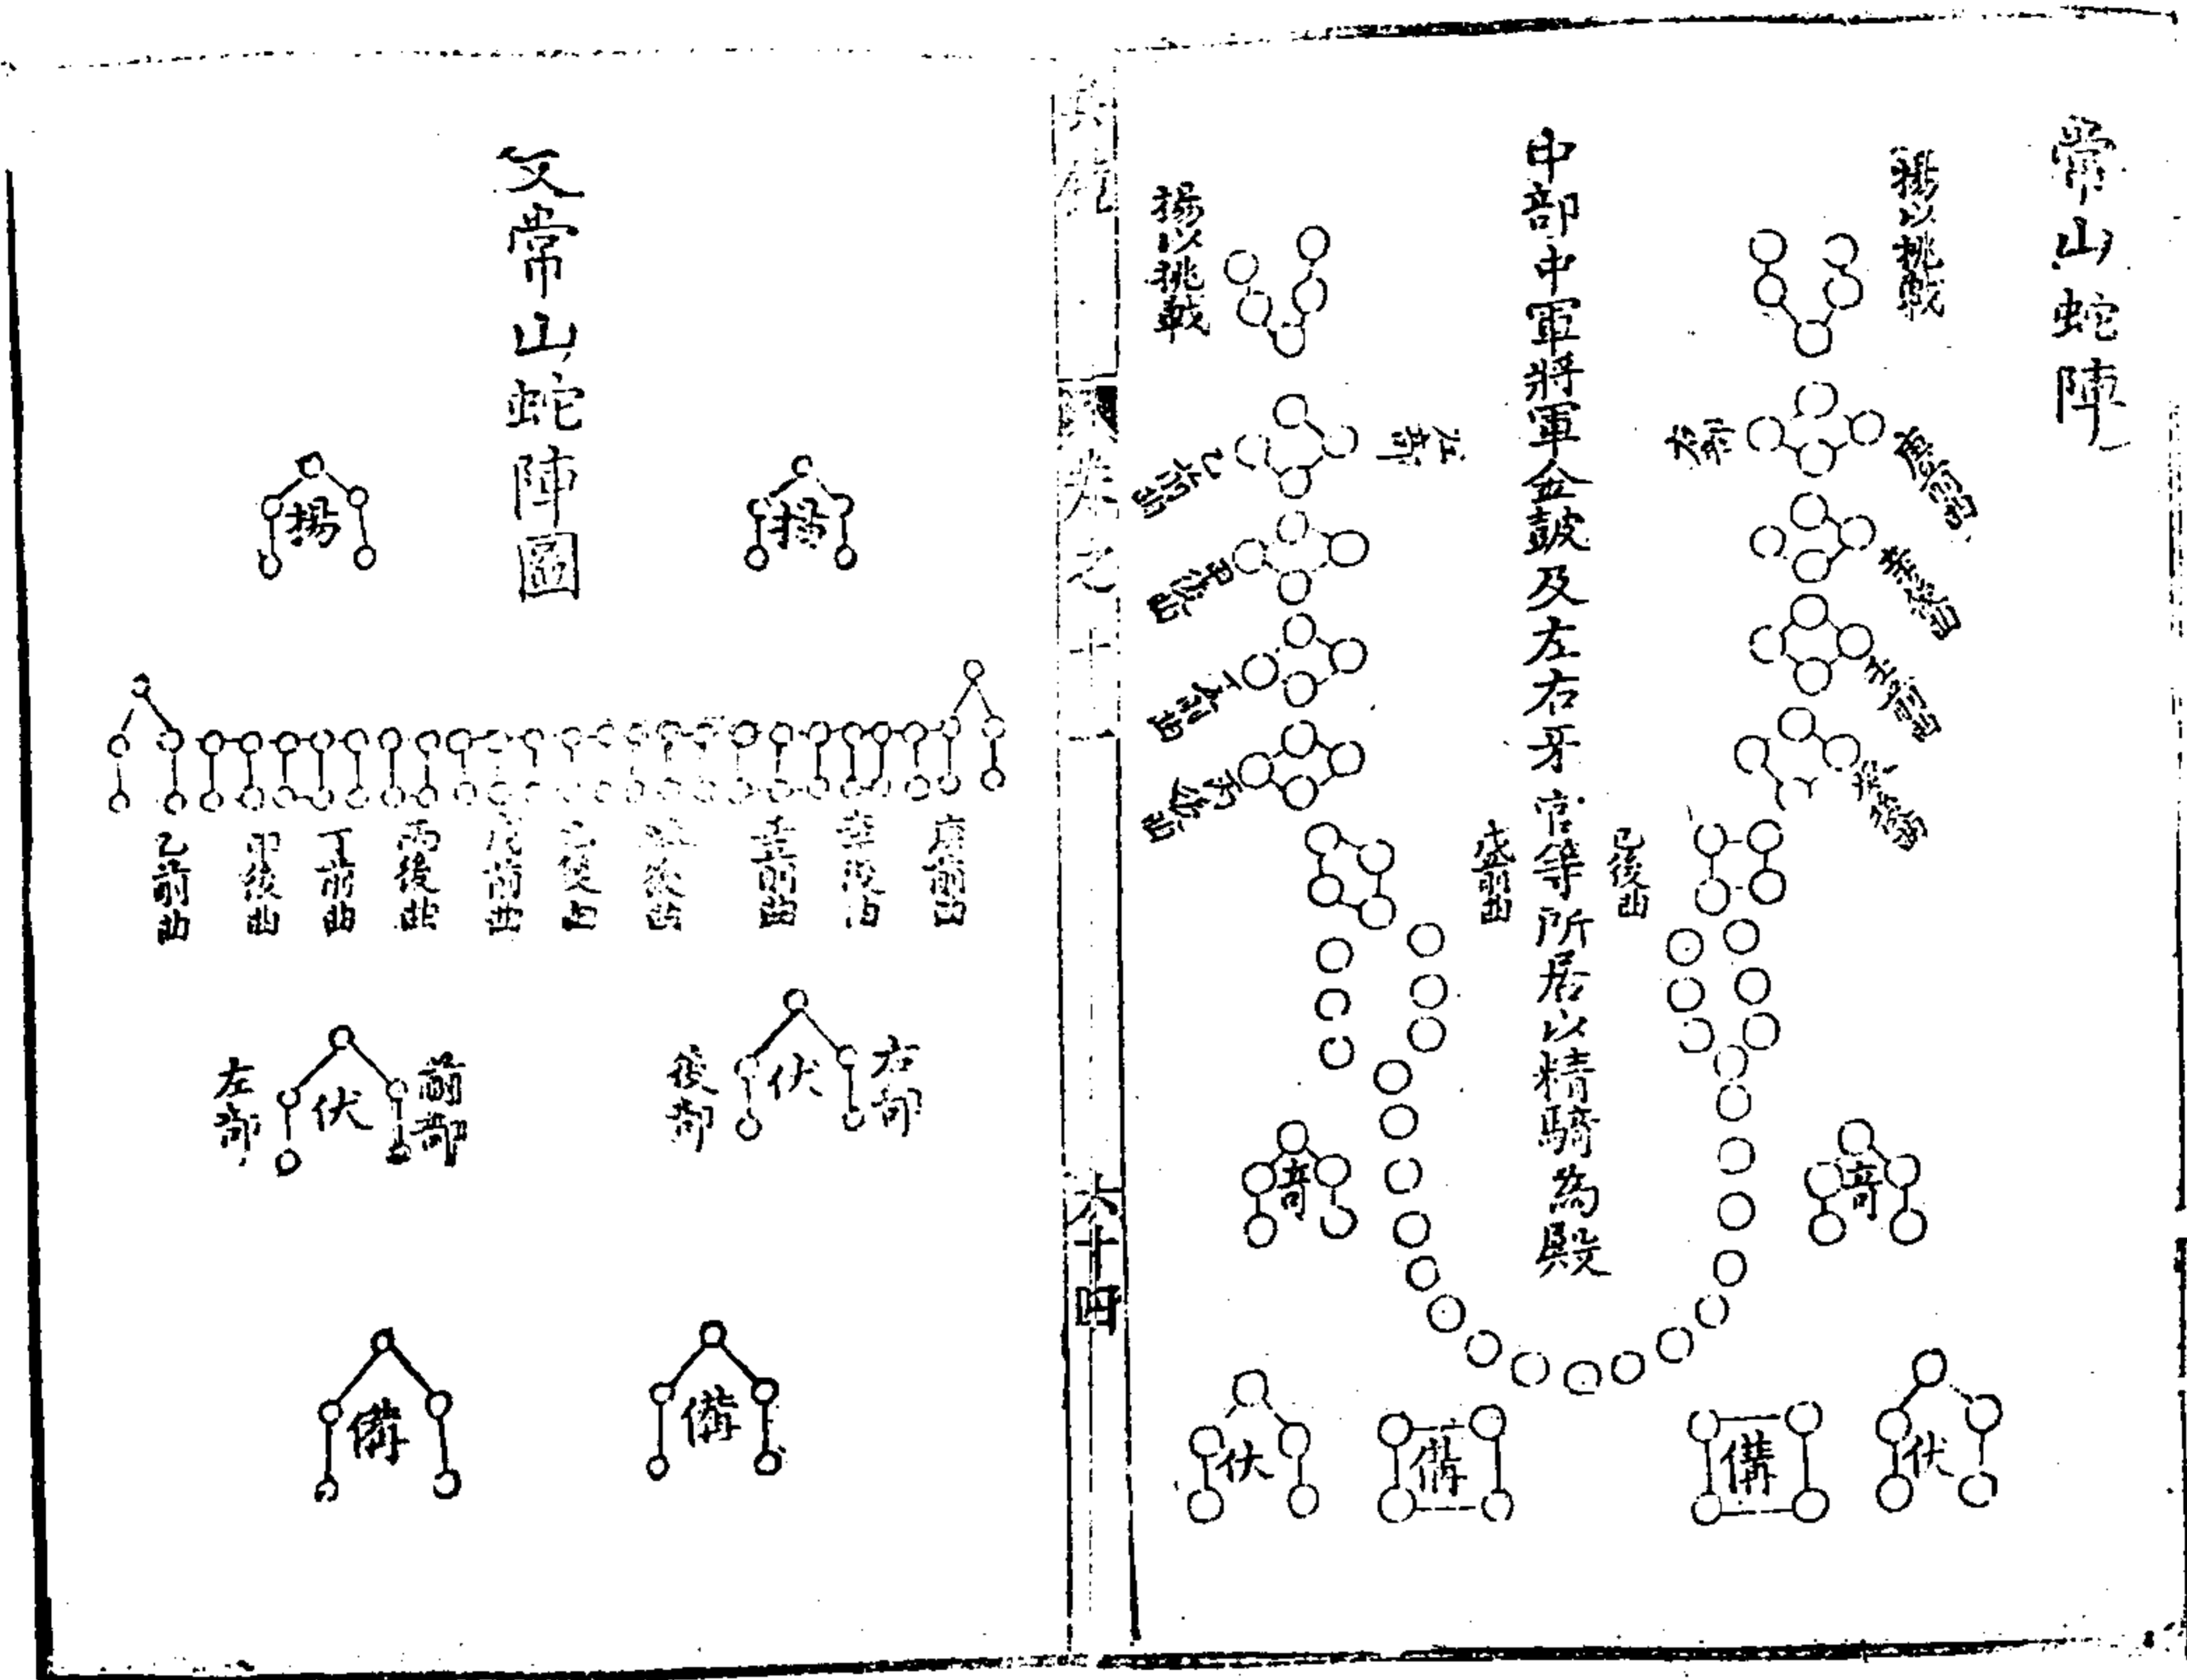 常山蛇陣
揚以挑戰
庚前曲
辛後曲
壬前曲
癸後曲
己後曲
中部中軍將軍金鼓及左右牙官等所居以精騎為殿
戊前曲
揚以挑戰
乙前曲
甲後曲
丁前曲
丙後曲
奇
奇
伏
備
備
伏
卷之十
六十四
又常山蛇陣圖
揚
揚
庚前曲
辛後曲
壬前曲
癸後曲
己後曲
戊前曲
丙後曲
丁前曲
甲後曲
乙前曲
右部
伏
後部
前部
伏
左部
備
備